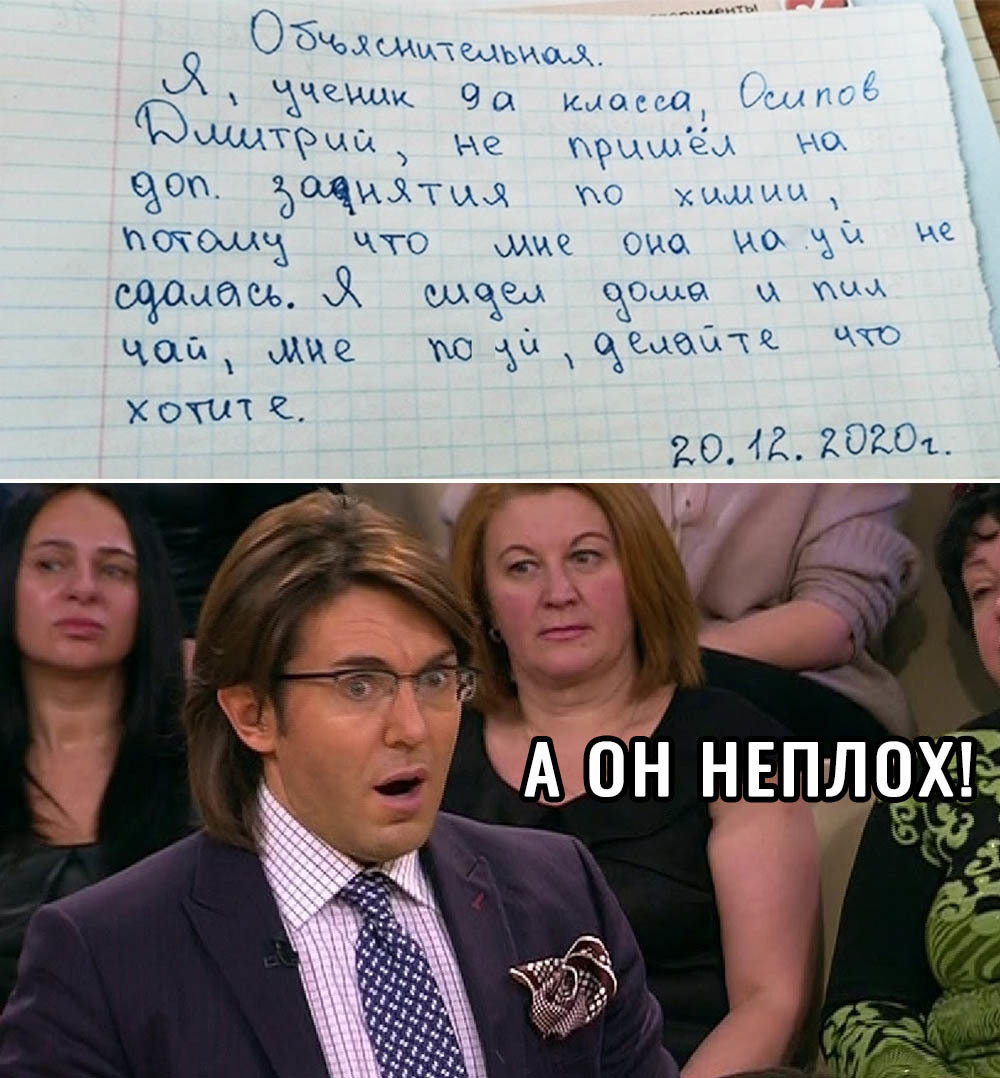 Объяснительная.
Я, ученик 9а класса, Осипов
Дмитрий, не пришёл на
доп. занятия по химии,
потому что мне она на уй не
сдалась. Я сидел дома и пил
чай, мне по уй, делайте что
хотите.
20.12.2020г.
А ОН НЕПЛОХ!